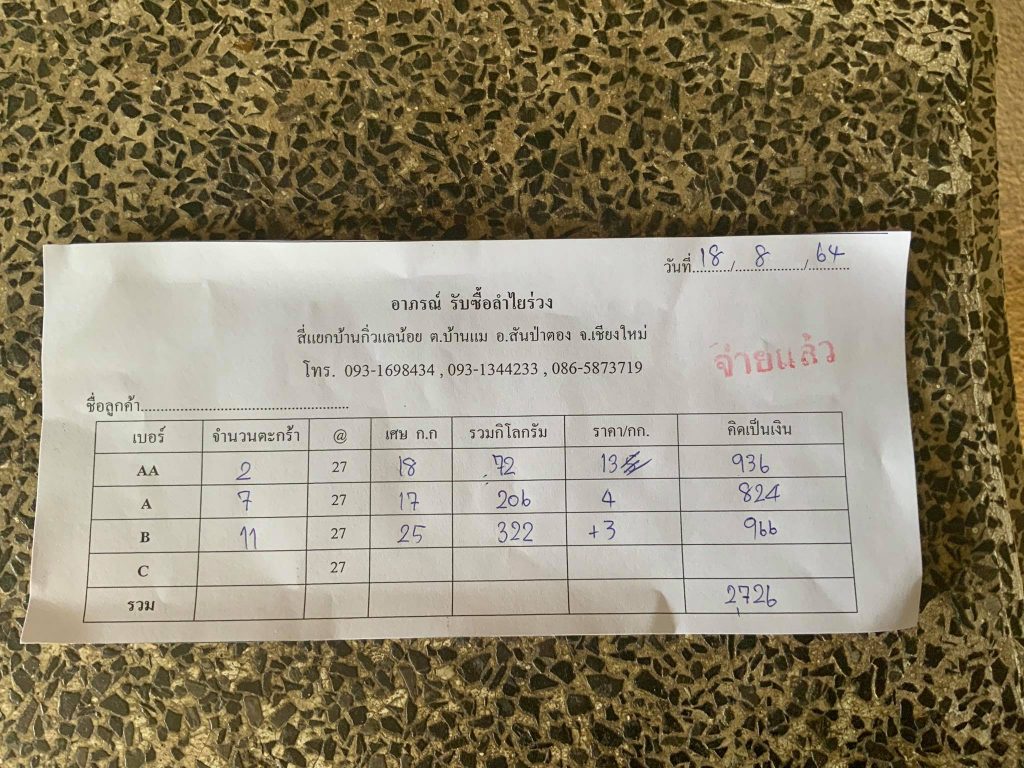 วันที่ 18 / 8 / 64
อาภรณ์ รับซื้อลำไยร่วง
สี่แยกบ้านกิ่วแลน้อย ต.บ้านแม อ.สันป่าตอง จ.เชียงใหม่
จ่ายแล้ว
โทร. 093-1698434 , 093-1344233 , 086-5873719
ชื่อลูกค้า
เบอร์ จำนวนตะกร้า @ เศษ ก.ก รวมกิโลกรัม ราคา/กก. คิดเป็นเงิน
AA 2 27 18 72 13 936
A 7 27 17 206 4 824
B 11 27 25 322 +3 966
C 27
รวม 2726